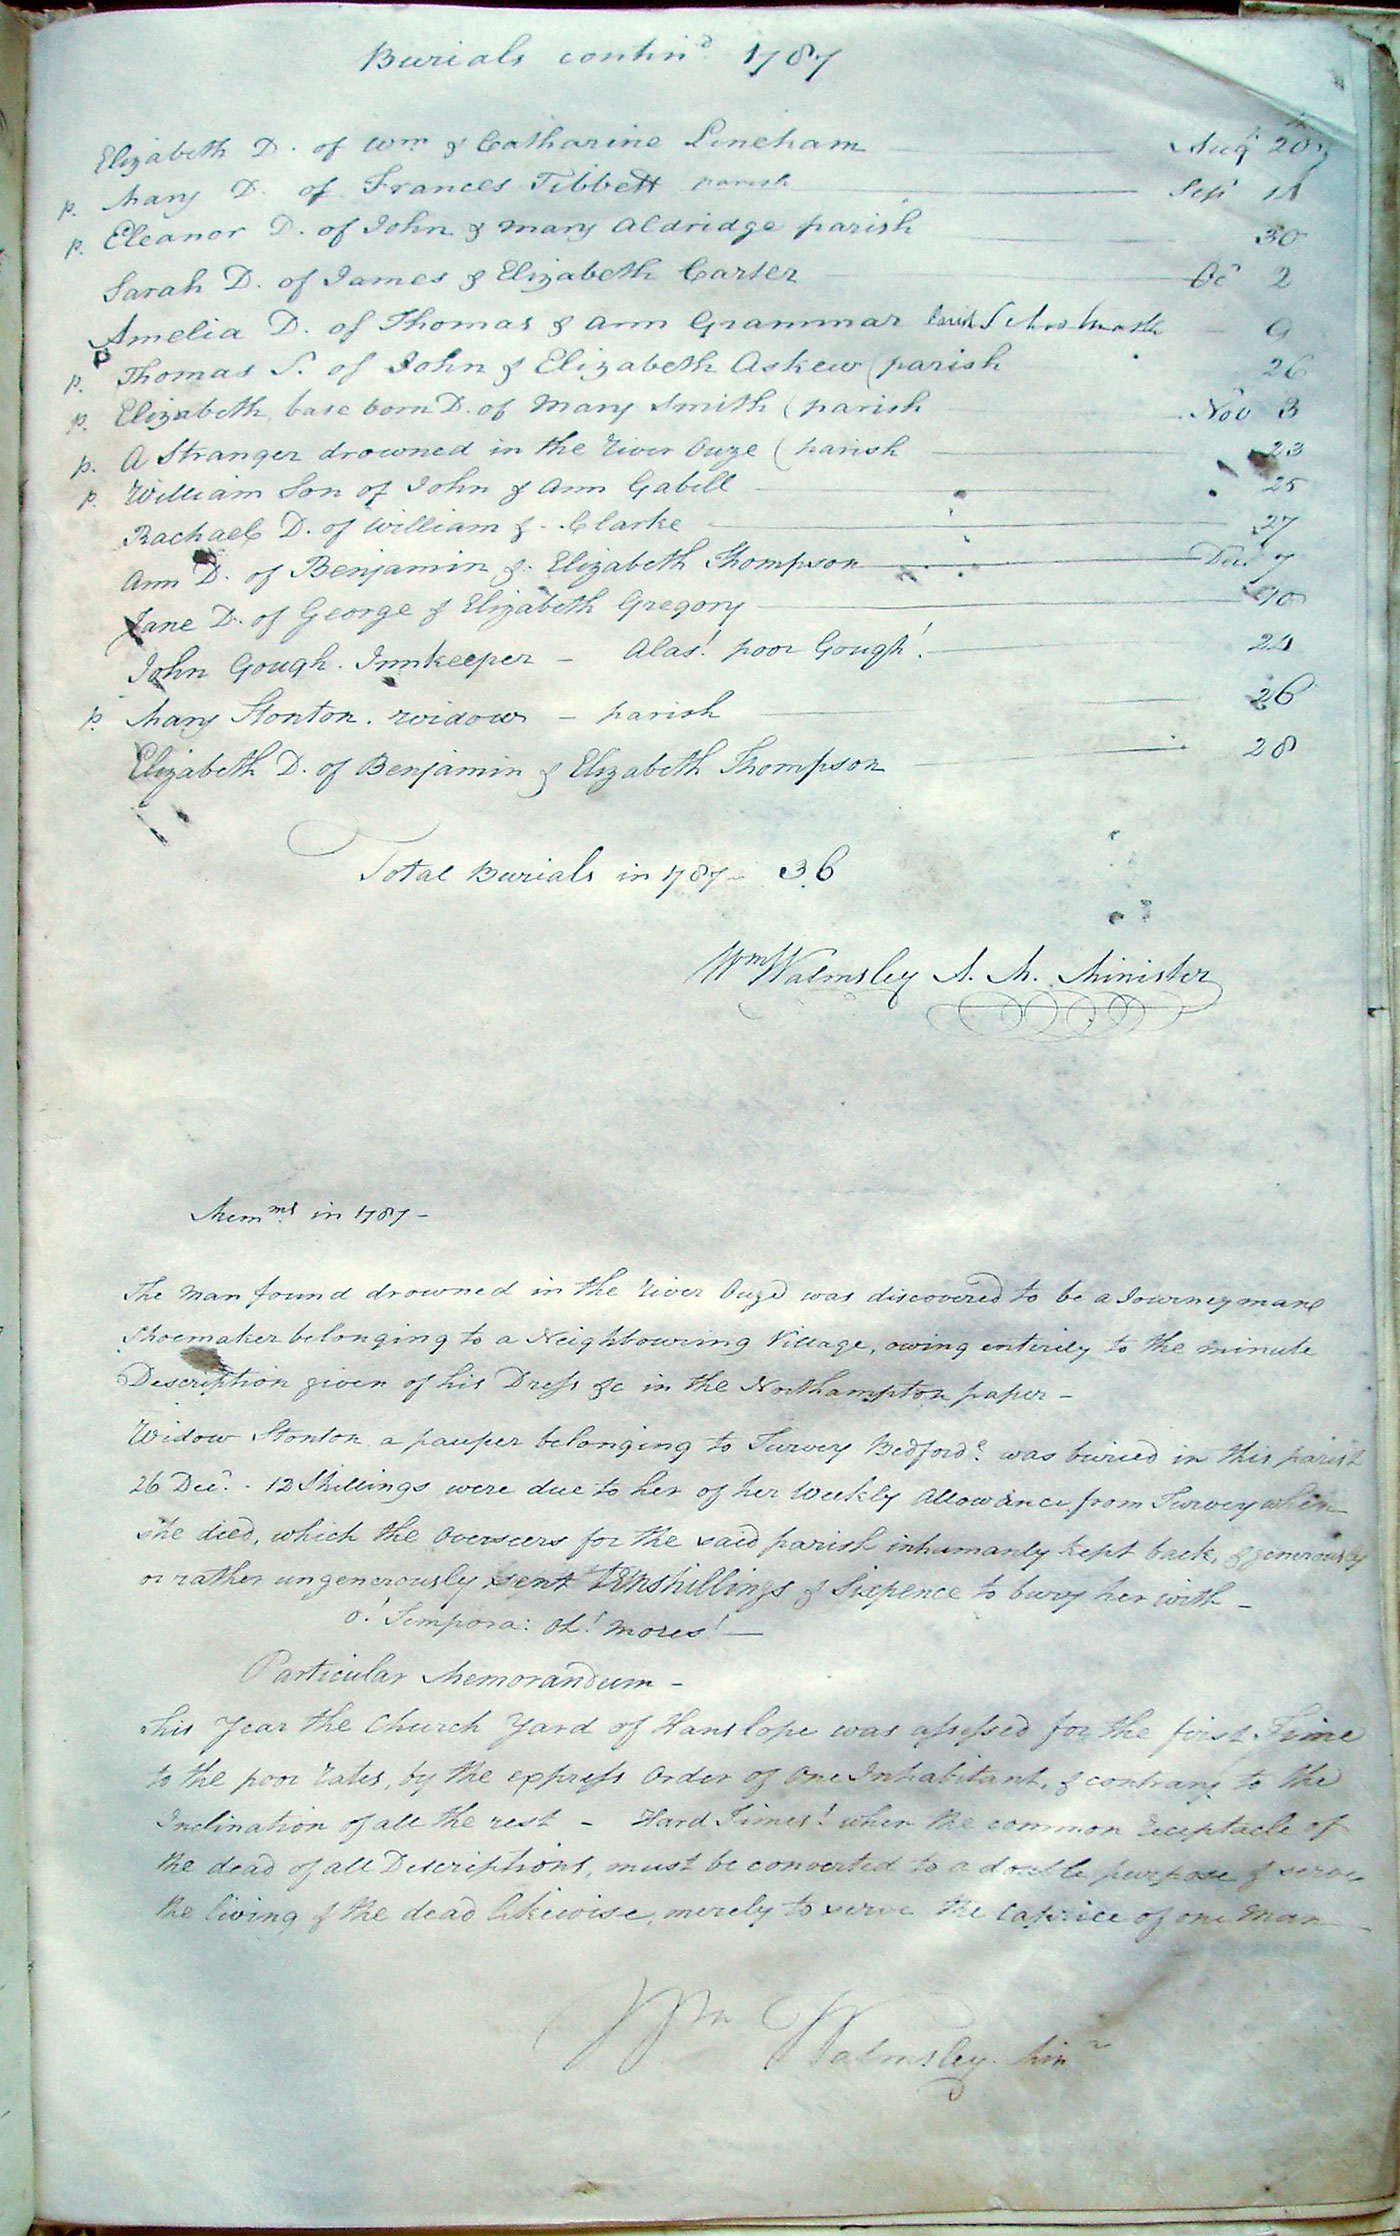 Burials contind 1787
Elizabeth D. of Wm & Catharine Lineham Augt 20th
p. Mary D. of Frances Tibbett parish Sept
p. Eleanor D. of John & Mary Aldridge parish 30
Sarah D. of James & Elizabeth Carter Oct 2
Amelia D. of Thomas & Ann Grammar Parish 9
p. Thomas S. of John & Elizabeth Askew (parish 26
p. Elizabeth, base born D. of Mary Smith (parish Nov 3
p. A Stranger drowned in the River Ouze (parish 23
p. William Son of John & Ann Gabell 25
Rachael D. of William & . Clarke 27
Ann D. of Benjamin & Elizabeth Thompson Dec 7
Jane D. of George & Elizabeth Gregory 10
John Gough. Innkeeper - Alas! poor Gough!
p. Mary Stonton. widow - parish 26
Elizabeth D. of Benjamin & Elizabeth Thompson 28
Total Burials in 1787 - 36
Wm Walmsley A. M. Minister
Memms in 1787 -
The Man found drowned in the River Ouze was discovered to be a Journeyman
Shoemaker belonging to a Neighbouring Village, owing entirely to the minute
Description given of his Dress &c in the Northampton paper -
Widow Stonton a pauper belonging to Turvey Bedfords. was buried in this parish
26 Decr. - 12 Shillings were due to her of her Weekly Allowance from Turvey when
she died, which the Overseers for the said parish inhumanly kept back, & generously
or rather ungenerously sent ten shillings & Sixpence to bury her with -
O! Tempora: Oh! Mores! -
Particular Memorandum -
This Year the Church Yard of Hanslope was assessed for the first Time
to the poor rates, by the express Order of One Inhabitant, & contrary to the
Inclination of all the rest - Hard Times! when the common receptacle of
the dead of all Descriptions, must be converted to a double purpose & serve
the living & the dead likewise, merely to serve the Caprice of one Man
Wm Walmsley Minr